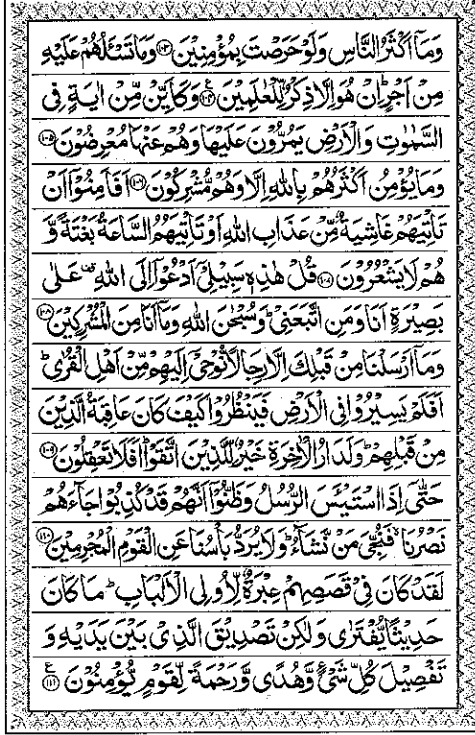 وَمَآ اَكْثَرُ النَّاسِ وَلَوْ حَرَصْتَ بِمُؤْمِنِيْنَ ﴿۱۰۳﴾ وَمَا تَسْـَٔلُهُمْ عَلَيْهِ
مِنْ اَجْرٍ ؕ اِنْ هُوَ اِلَّا ذِكْرٌ لِّلْعٰلَمِيْنَ ﴿۱۰۴﴾ وَكَاَيِّنْ مِّنْ اٰيَةٍ فِى
السَّمٰوٰتِ وَالْاَرْضِ يَمُرُّوْنَ عَلَيْهَا وَهُمْ عَنْهَا مُعْرِضُوْنَ ﴿۱۰۵﴾
وَمَا يُؤْمِنُ اَكْثَرُهُمْ بِاللّٰهِ اِلَّا وَهُمْ مُّشْرِكُوْنَ ﴿۱۰۶﴾ اَفَاَمِنُوْٓا اَنْ
تَاْتِيَهُمْ غَاشِيَةٌ مِّنْ عَذَابِ اللّٰهِ اَوْ تَاْتِيَهُمُ السَّاعَةُ بَغْتَةً وَّ
هُمْ لَا يَشْعُرُوْنَ ﴿۱۰۷﴾ قُلْ هٰذِهٖ سَبِيْلِىْٓ اَدْعُوْٓا اِلَى اللّٰهِ ؔ عَلٰى
بَصِيْرَةٍ اَنَا وَمَنِ اتَّبَعَنِىْ ؕ وَسُبْحٰنَ اللّٰهِ وَمَآ اَنَا مِنَ الْمُشْرِكِيْنَ ﴿۱۰۸﴾
وَمَآ اَرْسَلْنَا مِنْ قَبْلِكَ اِلَّا رِجَالًا نُّوْحِىْٓ اِلَيْهِمْ مِّنْ اَهْلِ الْقُرٰى ؕ
اَفَلَمْ يَسِيْرُوْا فِى الْاَرْضِ فَيَنْظُرُوْا كَيْفَ كَانَ عَاقِبَةُ الَّذِيْنَ
مِنْ قَبْلِهِمْ ؕ وَلَدَارُ الْاٰخِرَةِ خَيْرٌ لِّلَّذِيْنَ اتَّقَوْا ؕ اَفَلَا تَعْقِلُوْنَ ﴿۱۰۹﴾
حَتّٰٓى اِذَا اسْتَيْـَٔسَ الرُّسُلُ وَظَنُّوْٓا اَنَّهُمْ قَدْ كُذِبُوْا جَآءَهُمْ
نَصْرُنَا ۙ فَنُجِّىَ مَنْ نَّشَآءُ ؕ وَلَا يُرَدُّ بَاْسُنَا عَنِ الْقَوْمِ الْمُجْرِمِيْنَ ﴿۱۱۰﴾
لَقَدْ كَانَ فِىْ قَصَصِهِمْ عِبْرَةٌ لِّاُولِى الْاَلْبَابِ ؕ مَا كَانَ
حَدِيْثًا يُّفْتَرٰى وَلٰكِنْ تَصْدِيْقَ الَّذِىْ بَيْنَ يَدَيْهِ وَ
تَفْصِيْلَ كُلِّ شَىْءٍ وَّهُدًى وَّرَحْمَةً لِّقَوْمٍ يُّؤْمِنُوْنَ ﴿۱۱۱﴾